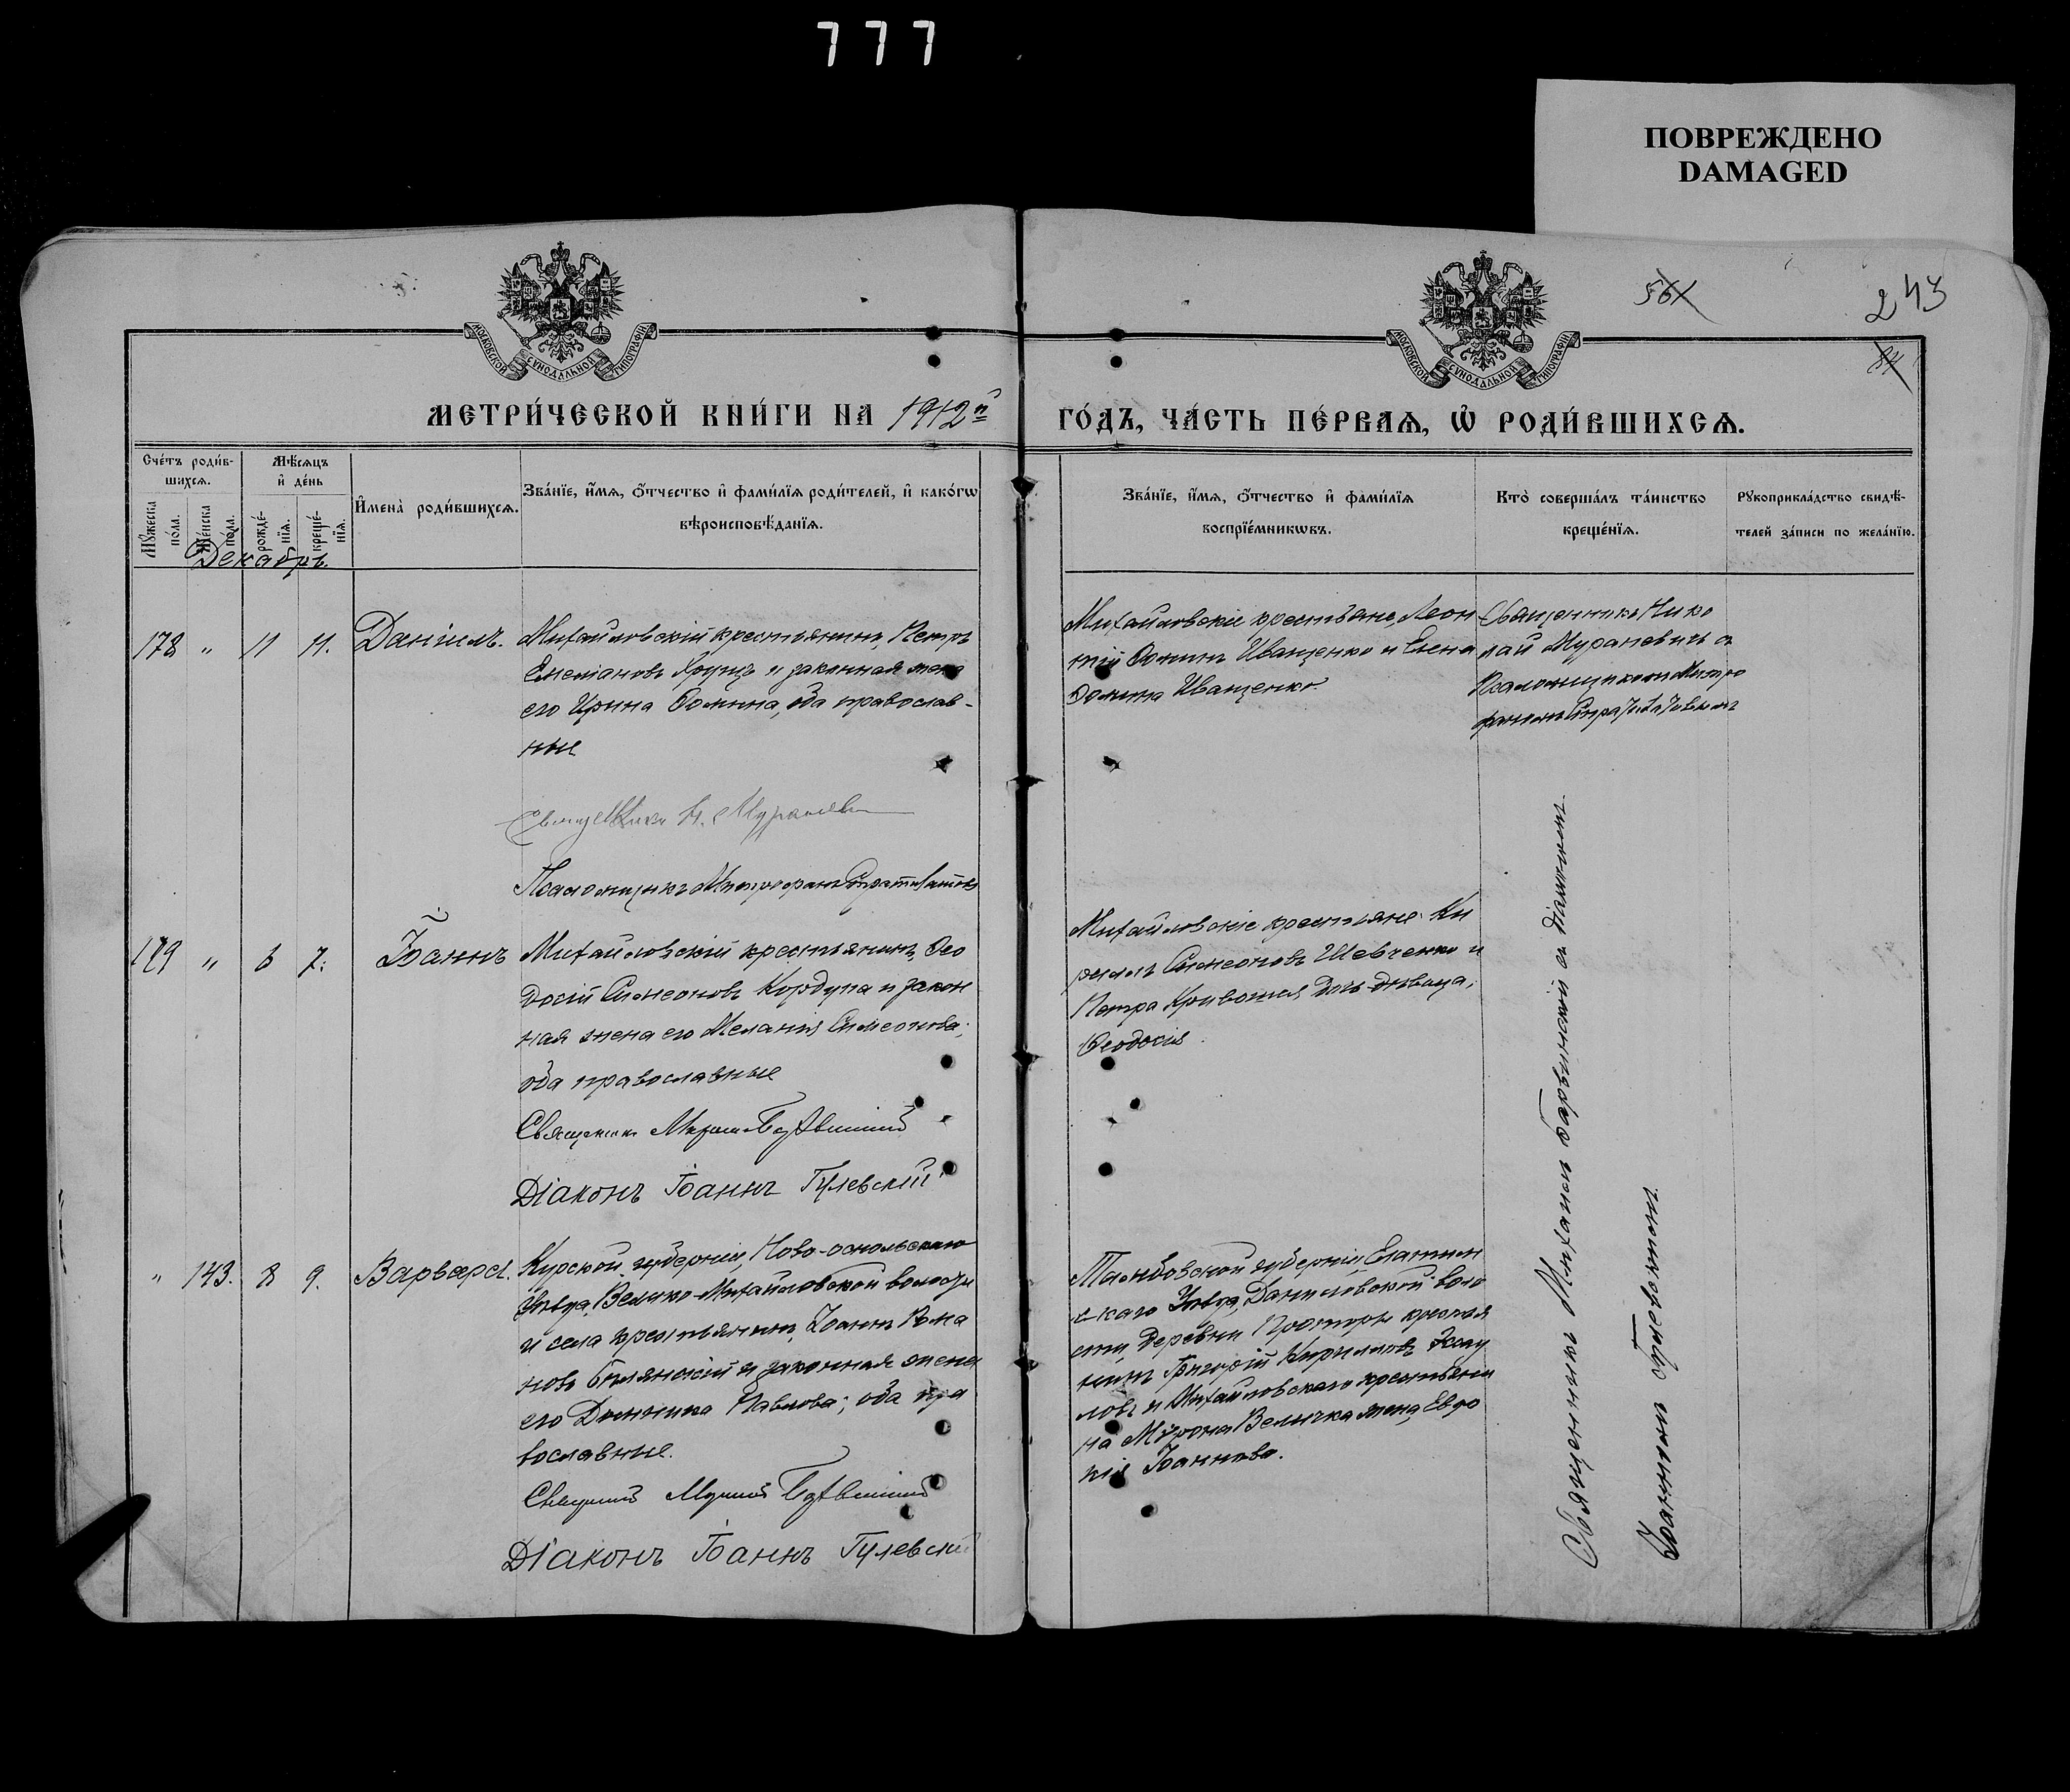 777
ПОВРЕЖДЕНО
DAMAGED
561
243
84
МОСКОВСКОЙ СѴНОДАЛЬНОЙ ТИПОГРАФІИ
МОСКОВСКОЙ СѴНОДАЛЬНОЙ ТИПОГРАФІИ
МЕТРИ́ЧЕСКОЙ КНИ́ГИ НА 1912й
ГО́ДЪ, ЧА́СТЬ ПЕ́РВАѦ, Ѡ҆ РОДИ́ВШИХСѦ.
Сче́тъ роди́в-
шихсѧ.
Мꙋ́жеска
по́ла.
Же́нска
по́ла.
Мѣ́сѧцъ
и҆ де́нь
рожде́-
нїѧ.
креще́-
нїѧ.
И҆мена̀ роди́вшихсѧ.
Зва́нїе, и҆́мѧ, ѻ҆́тчество и҆ фами́лїѧ роди́телей, и҆ како́гѡ
вѣроисповѣ́данїѧ.
Зва́нїе, и҆́мѧ, ѻ҆́тчество и҆ фами́лїѧ
воспрїе́мникѡвъ.
Кто̀ соверша́лъ та́инство
креще́нїѧ.
Рꙋкоприкла́дство свидѣ́-
телей за́писи по жела́нїю.
Декабрь.
178 " 11 11. Даніилъ.
Михайловскій крестьянинъ, Петръ
Емеліановъ и законная жена
его Ирина Ѳомина, оба православ-
ные
Священникъ Н. Мураневич
Псаломщикъ Митрофанъ
Михайловскіе крестьяне, Леон
тій Ѳоминъ Иващенко и Елена
Ѳомина Иващенко.
Священникъ Нико
лай Мураневичъ съ
Псаломщикомъ Митро
фаномъ
179 " 6 7. Іоаннъ
Михайловскій крестьянинъ, Ѳео
досій Симеоновъ Кордупа и закон
ная жена его Меланія Симеонова;
оба православные
Священникъ
Діаконъ Іоаннъ Гулевскій
Михайловскіе крестьяне: Ки
риллъ Симеоновъ Шевченко и
Петра Кривошея дочь девица,
Ѳеодосія.
" 143. 8 9. Варвара.
Курской губерніи, Ново-оскольскаго
уѣзда, Велико-Михайловской волости
и села крестьянинъ, Іоаннъ Рома
новъ и законная жена
его Домникія Павлова; оба пра
вославные.
Священникъ
Діаконъ Іоаннъ Гулевскій
Тамбовской губерніи, Елатом
скаго Уѣзда, Даниловской воло
сти, деревни крестья
нинъ Григорій Кирилловъ
ловъ и Михайловскаго крестьяни
на Мѵрона Величка жена, Евдо
кія Іоаннова.
Священникъ Михаилъ съ діакономъ
Іоанномъ Гулевскимъ.